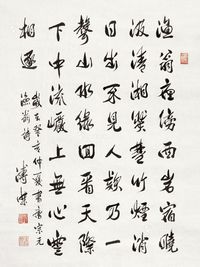 漁翁夜傍西岩宿曉
汲清湘燃楚竹煙消
日出不見人欸乃一
聲山水綠回看天際
下中流巖上無心雲
相逐
歲在癸亥仲夏書宗元
漁翁詩
溥傑